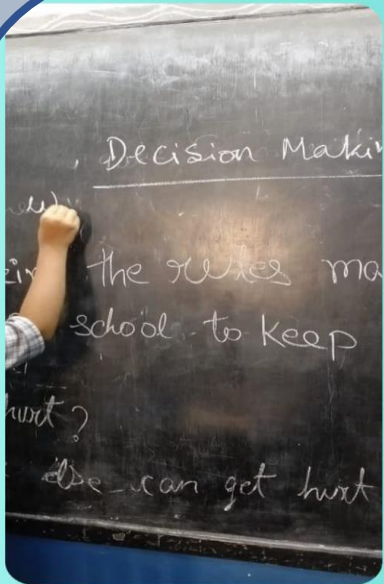 Decision Makin
the rules ma
school to keep
hurt?
else can get hurt